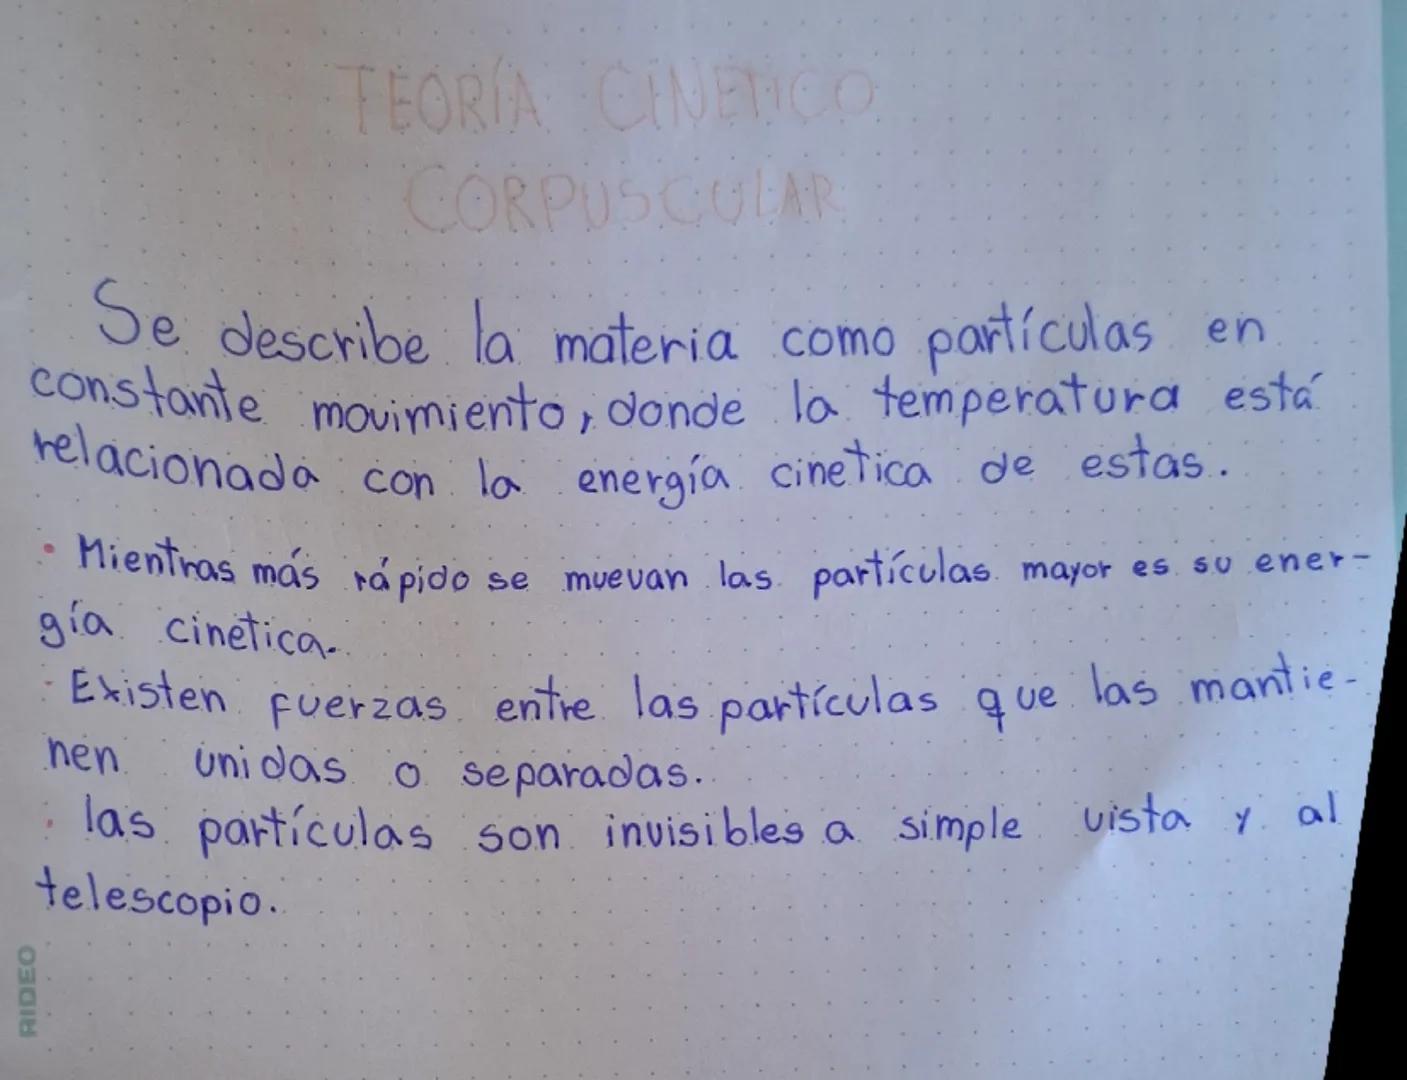 TEORÍA CINETICO
CORPUSCULAR
Se describe la materia como partículas en
constante movimiento, donde la temperatura está
relacionada con la energía cinetica de estas.
· Mientras más rápido se muevan las partículas mayor es su ener-
gía cinetica.
· Existen fuerzas entre las partículas que las mantie-
nen unidas o separadas.
· las partículas son invisibles a simple vista y al
telescopio.
RIDEO